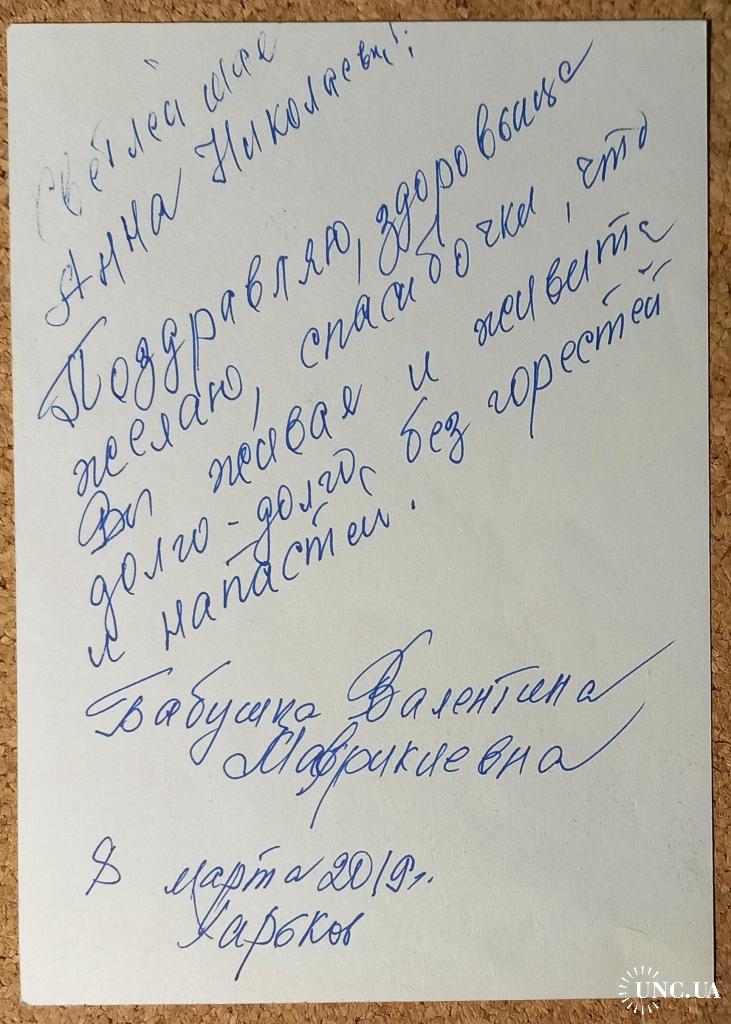 Светлейшая
Анна Николаевн!
Поздравляю, здоровьица
желаю, спасибочки, что
Вы живая и живите
долго-долго, без горестей
и напастей.
Бабушка Валентина
Маврикиевна
8 марта 2019г.
Харьков
UNC.UA